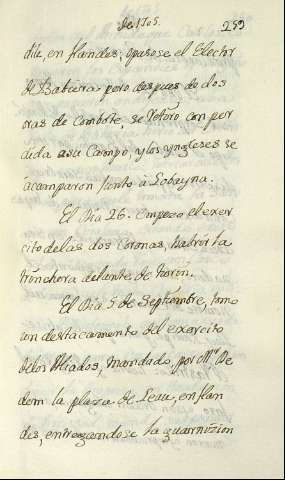 de 1705. 259
dile, en flandes; opusose el Elector
de Baviera pero despues de dos
oras de Combate, se retiro con per
dida a su Campo, y los yngleses se
acamparon Junto à Lobayna.
El Dia 26. empezo el exer
cito de las dos Coronas, ha abrir la
trinchera delante de Turin.
El Dia 5 de Septiembre, tomo
un destacamento del exercito
de los Aliados, mandado, por Mr. De
dem la plaza de Leau, en flan
des, entregandose la guarnizion